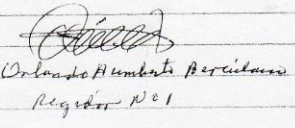 Orlando Humberto Bercián
Regidor No 1